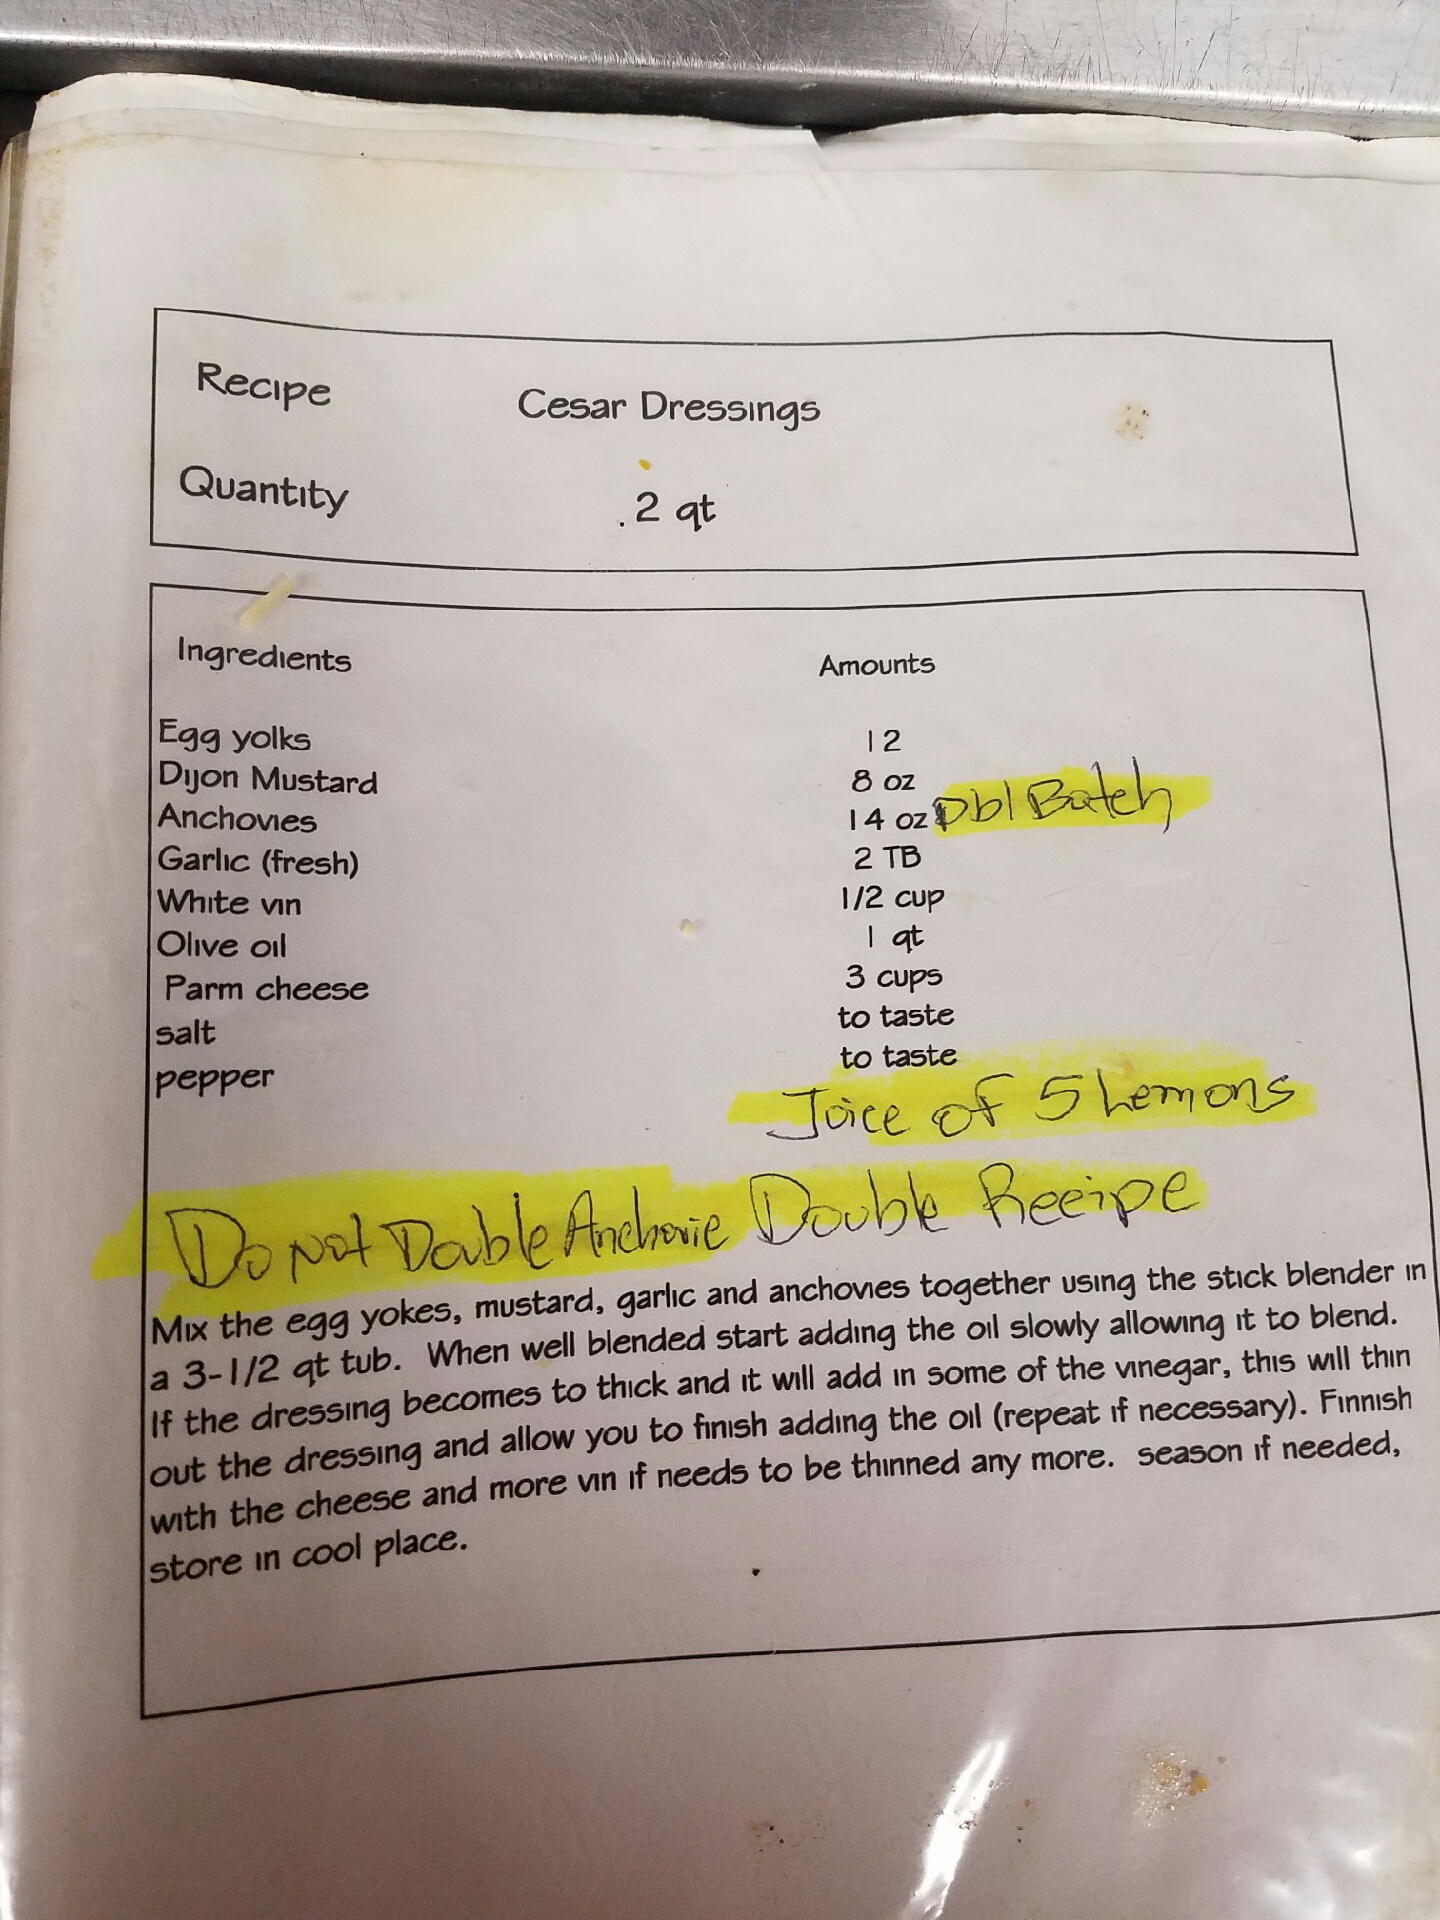 Recipe Cesar Dressings
Quantity .2 qt
Ingredients Amounts
Egg yolks 12
Dijon Mustard 8 oz
Anchovies 14 oz Dbl Batch
Garlic (fresh) 2 TB
White vin 1/2 cup
Olive oil 1 qt
Parm cheese 3 cups
salt to taste
pepper to taste
Juice of 5 Lemons
Do Not Double Anchovie Double Recipe
Mix the egg yokes, mustard, garlic and anchovies together using the stick blender in
a 3-1/2 qt tub. When well blended start adding the oil slowly allowing it to blend.
If the dressing becomes to thick and it will add in some of the vinegar, this will thin
out the dressing and allow you to finish adding the oil (repeat if necessary). Finnish
with the cheese and more vin if needs to be thinned any more. season if needed,
store in cool place.